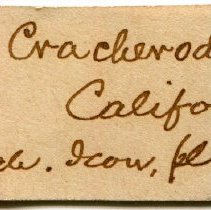 Cracherod
Califo
ch. Icon, pl